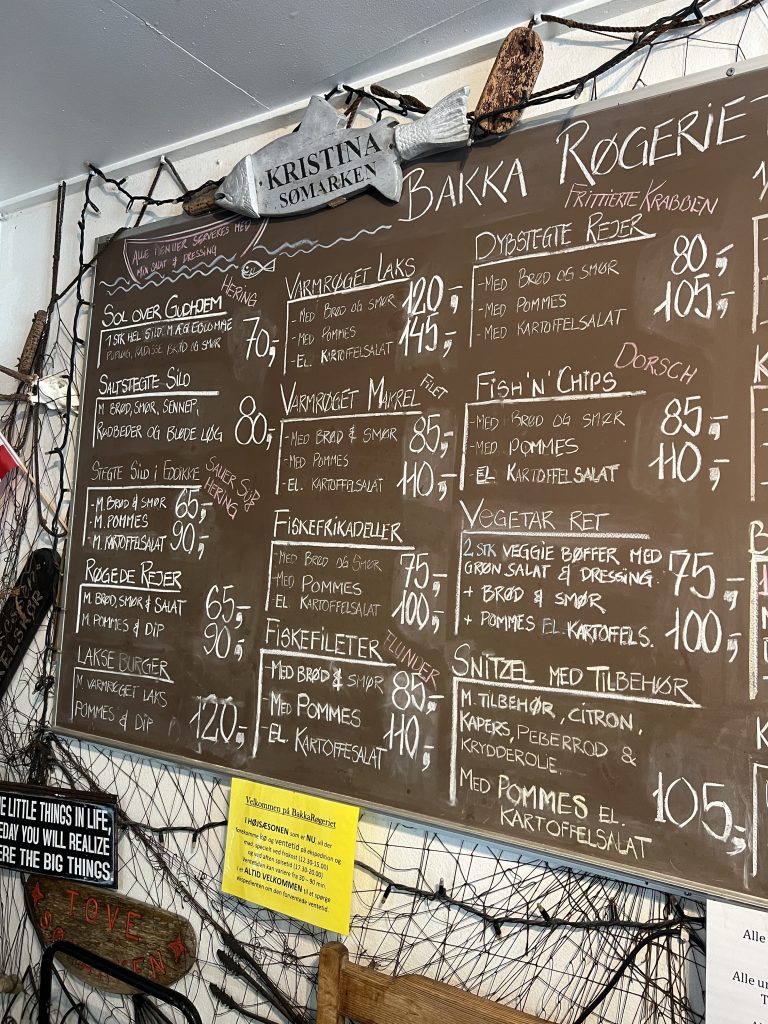 KRISTINA
SØMARKEN
BAKKA RØGERIET
ALLE MENUER SERVERES MED
MIN SALAT & DRESSING
SOL OVER GUDHJEM
HERING
1 STK HEL SILD M. ÆGGEBLOMME
PURLØG, RADISSE BRØD OG SMØR
70,-
SALTSTEGTE SILD
M. BRØD, SMØR, SENNEP,
RØDBEDER OG BLØDE LØG
80,-
STEGTE SILD I EDDIKE
SAUER SÜß
HERING
- M. BRØD & SMØR 65,-
- M. POMMES
- M. KARTOFFELSALAT 90,-
RØGEDE REJER
M. BRØD, SMØR & SALAT 65,-
M. POMMES & DIP 90,-
LAKSE BURGER
M. VARMRØGET LAKS
POMMES & DIP 120,-
VARMRØGET LAKS
- MED BRØD OG SMØR 120,-
- MED POMMES
- EL. KARTOFFELSALAT 145,-
VARMRØGET MAKREL
FILET
- MED BRØD & SMØR 85,-
- MED POMMES
- EL. KARTOFFELSALAT 110,-
FISKEFRIKADELLER
- MED BRØD OG SMØR 75,-
- MED POMMES
EL. KARTOFFELSALAT 100,-
FISKEFILETER
FLUNDER
- MED BRØD & SMØR 85,-
MED POMMES
- EL. KARTOFFESALAT 110,-
FRITTIERTE KRABBEN
DYBSTEGTE REJER
- MED BRØD OG SMØR 80,-
- MED POMMES 105,-
- MED KARTOFFELSALAT
DORSCH
FISH'N'CHIPS
- MED BRØD OG SMØR 85,-
- MED POMMES
EL. KARTOFFELSALAT 110,-
VEGETAR RET
2 STK VEGGIE BØFFER MED
GRØN SALAT & DRESSING.
+ BRØD & SMØR 75,-
+ POMMES EL. KARTOFFELS. 100,-
SNITZEL MED TILBEHØR
M. TILBEHØR, CITRON,
KAPERS, PEBERROD &
KRYDDEROLIE.
MED POMMES EL. 105,-
KARTOFFELSALAT
Velkommen på BakkaRøgeriet
I HØJSÆSONEN som er NU, vil der
forekomme kø og ventetid på ekspedition og
mad, specielt ved frokost (12.30-15.00)
og ved aften spisetid (17.30-20.00)
Ventetiden kan variere fra 30 – 90 min.
I er ALTID VELKOMMEN til at spørge
ekspedienten om den forventede ventetid.
E LITTLE THINGS IN LIFE,
EDAY YOU WILL REALIZE
ERE THE BIG THINGS
TOVE
Alle
Alle